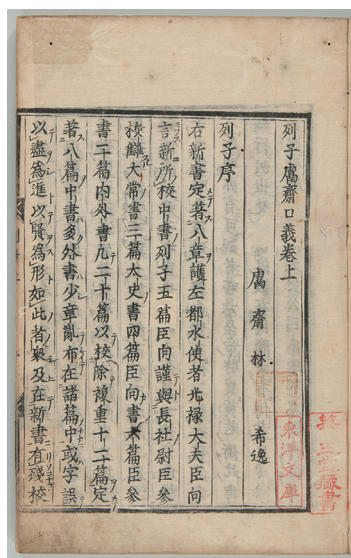 列子鬳齋口義卷上
鬳齋林 希逸
列子序
右新書定著八章護左都水使者光禄大夫臣向
言新所校中書列子五篇臣向謹與長社尉臣參
校讎太常書三篇太史書四篇臣向書六篇臣參
書二篇内外書凡二十篇以校除複重十二篇定
著八篇中書多外書少章亂布在諸篇中或字誤
以盡為進以賢為形如此者衆及在新書有殘校
東洋文庫
藏書